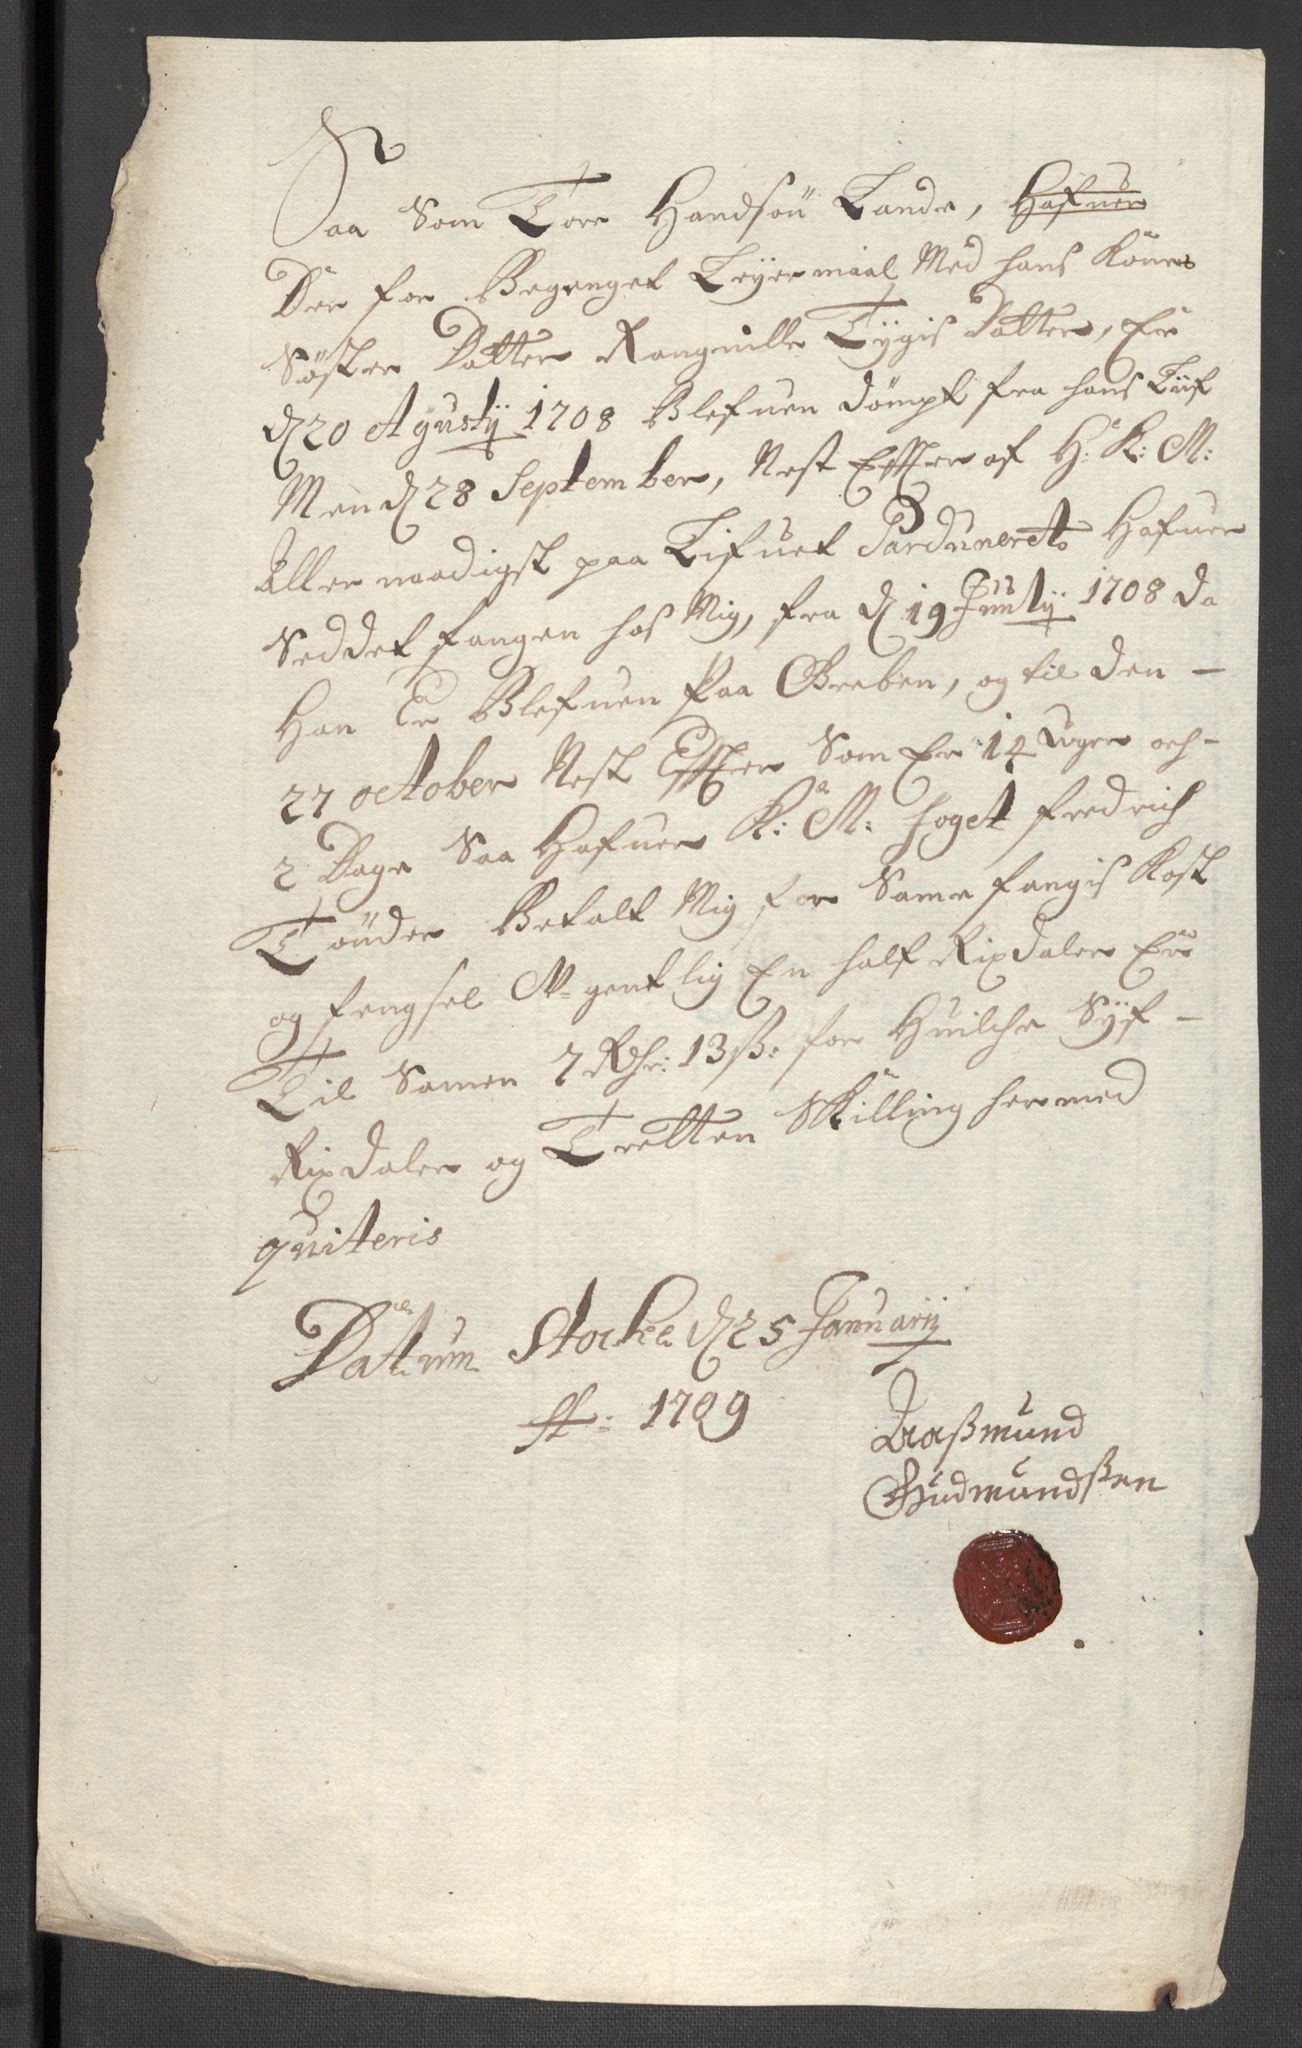 Saa Som Tore Handsøn Lande, Hafuer
Der for Begenget Leyermaal Med hans Køn̄es
Søster Datter Rangnille Tÿgis Datter, Er
d 20 Agustÿ 1708 Blefuen dømpt fra hans Liif
Men d 28 September, Nest Effter af H: K: M:
Aller naadigst paa Lifuet Parduneret Hafuer
Seddet fangen hos Mig, fra d 19 Julÿ 1708 da
Han Er Blefuen Paa Greben, og til den –
27 october Nest Effter Som Er 14 Uger och –
2 Dage Saa Hafuer K: M: foget fredrich
Tønder Betalt Mig for Same fangis Kost
og fengsel U-gentlig En half Rixdaler Er
Til Samen 7 Rdr: 13 ß: for Huilche Syf –
Rixdaler og Tretten Skilling hermed
quiteris
Datum Stocke d 25 Januarij
A: 1709
Raßmund
Gudmundßen